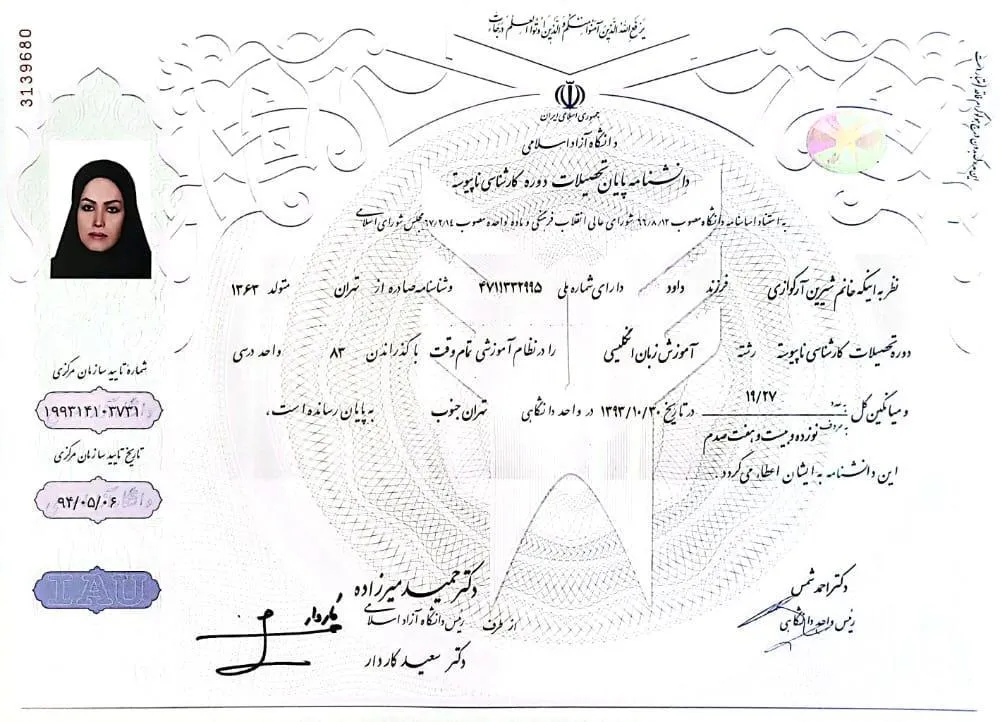 یرفع الله الذین آمنوا منکم والذین اوتوا العلم درجات
3139680
جمهوری اسلامی ایران
دانشگاه آزاد اسلامی
دانشنامه پایان تحصیلات دوره کارشناسی ناپیوسته
به استناد اساسنامه دانشگاه مصوب ۶۶/۸/۱۲ شورای عالی انقلاب فرهنگی و ماده واحده مصوب ۶۷/۲/۱۴ مجلس شورای اسلامی
نظر به اینکه خانم شیرین آرکوازی فرزند داود دارای شماره ملی ۴۷۱۱۳۳۲۹۹۵ و شناسنامه صادره از تهران متولد ۱۳۶۳
دوره تحصیلات کارشناسی ناپیوسته رشته آموزش زبان انگلیسی را در نظام آموزشی تمام وقت با گذراندن ۸۳ واحد درسی
و میانگین کل به عدد ۱۹/۲۷ به حروف نوزده و بیست و هفت صدم در تاریخ ۱۳۹۳/۱۰/۳۰ در واحد دانشگاهی تهران جنوب به پایان رسانده است،
این دانشنامه به ایشان اعطاء می‌گردد.
شماره تایید سازمان مرکزی
۱۹۹۳۱۴۱۰۳۷۳۱
تاریخ تایید سازمان مرکزی
۹۴/۰۵/۰۶
IAU
دکتر احمد شمس
رئیس واحد دانشگاهی
دکتر حمید میرزاده
از طرف رئیس دانشگاه آزاد اسلامی
دکتر سعید کاردار